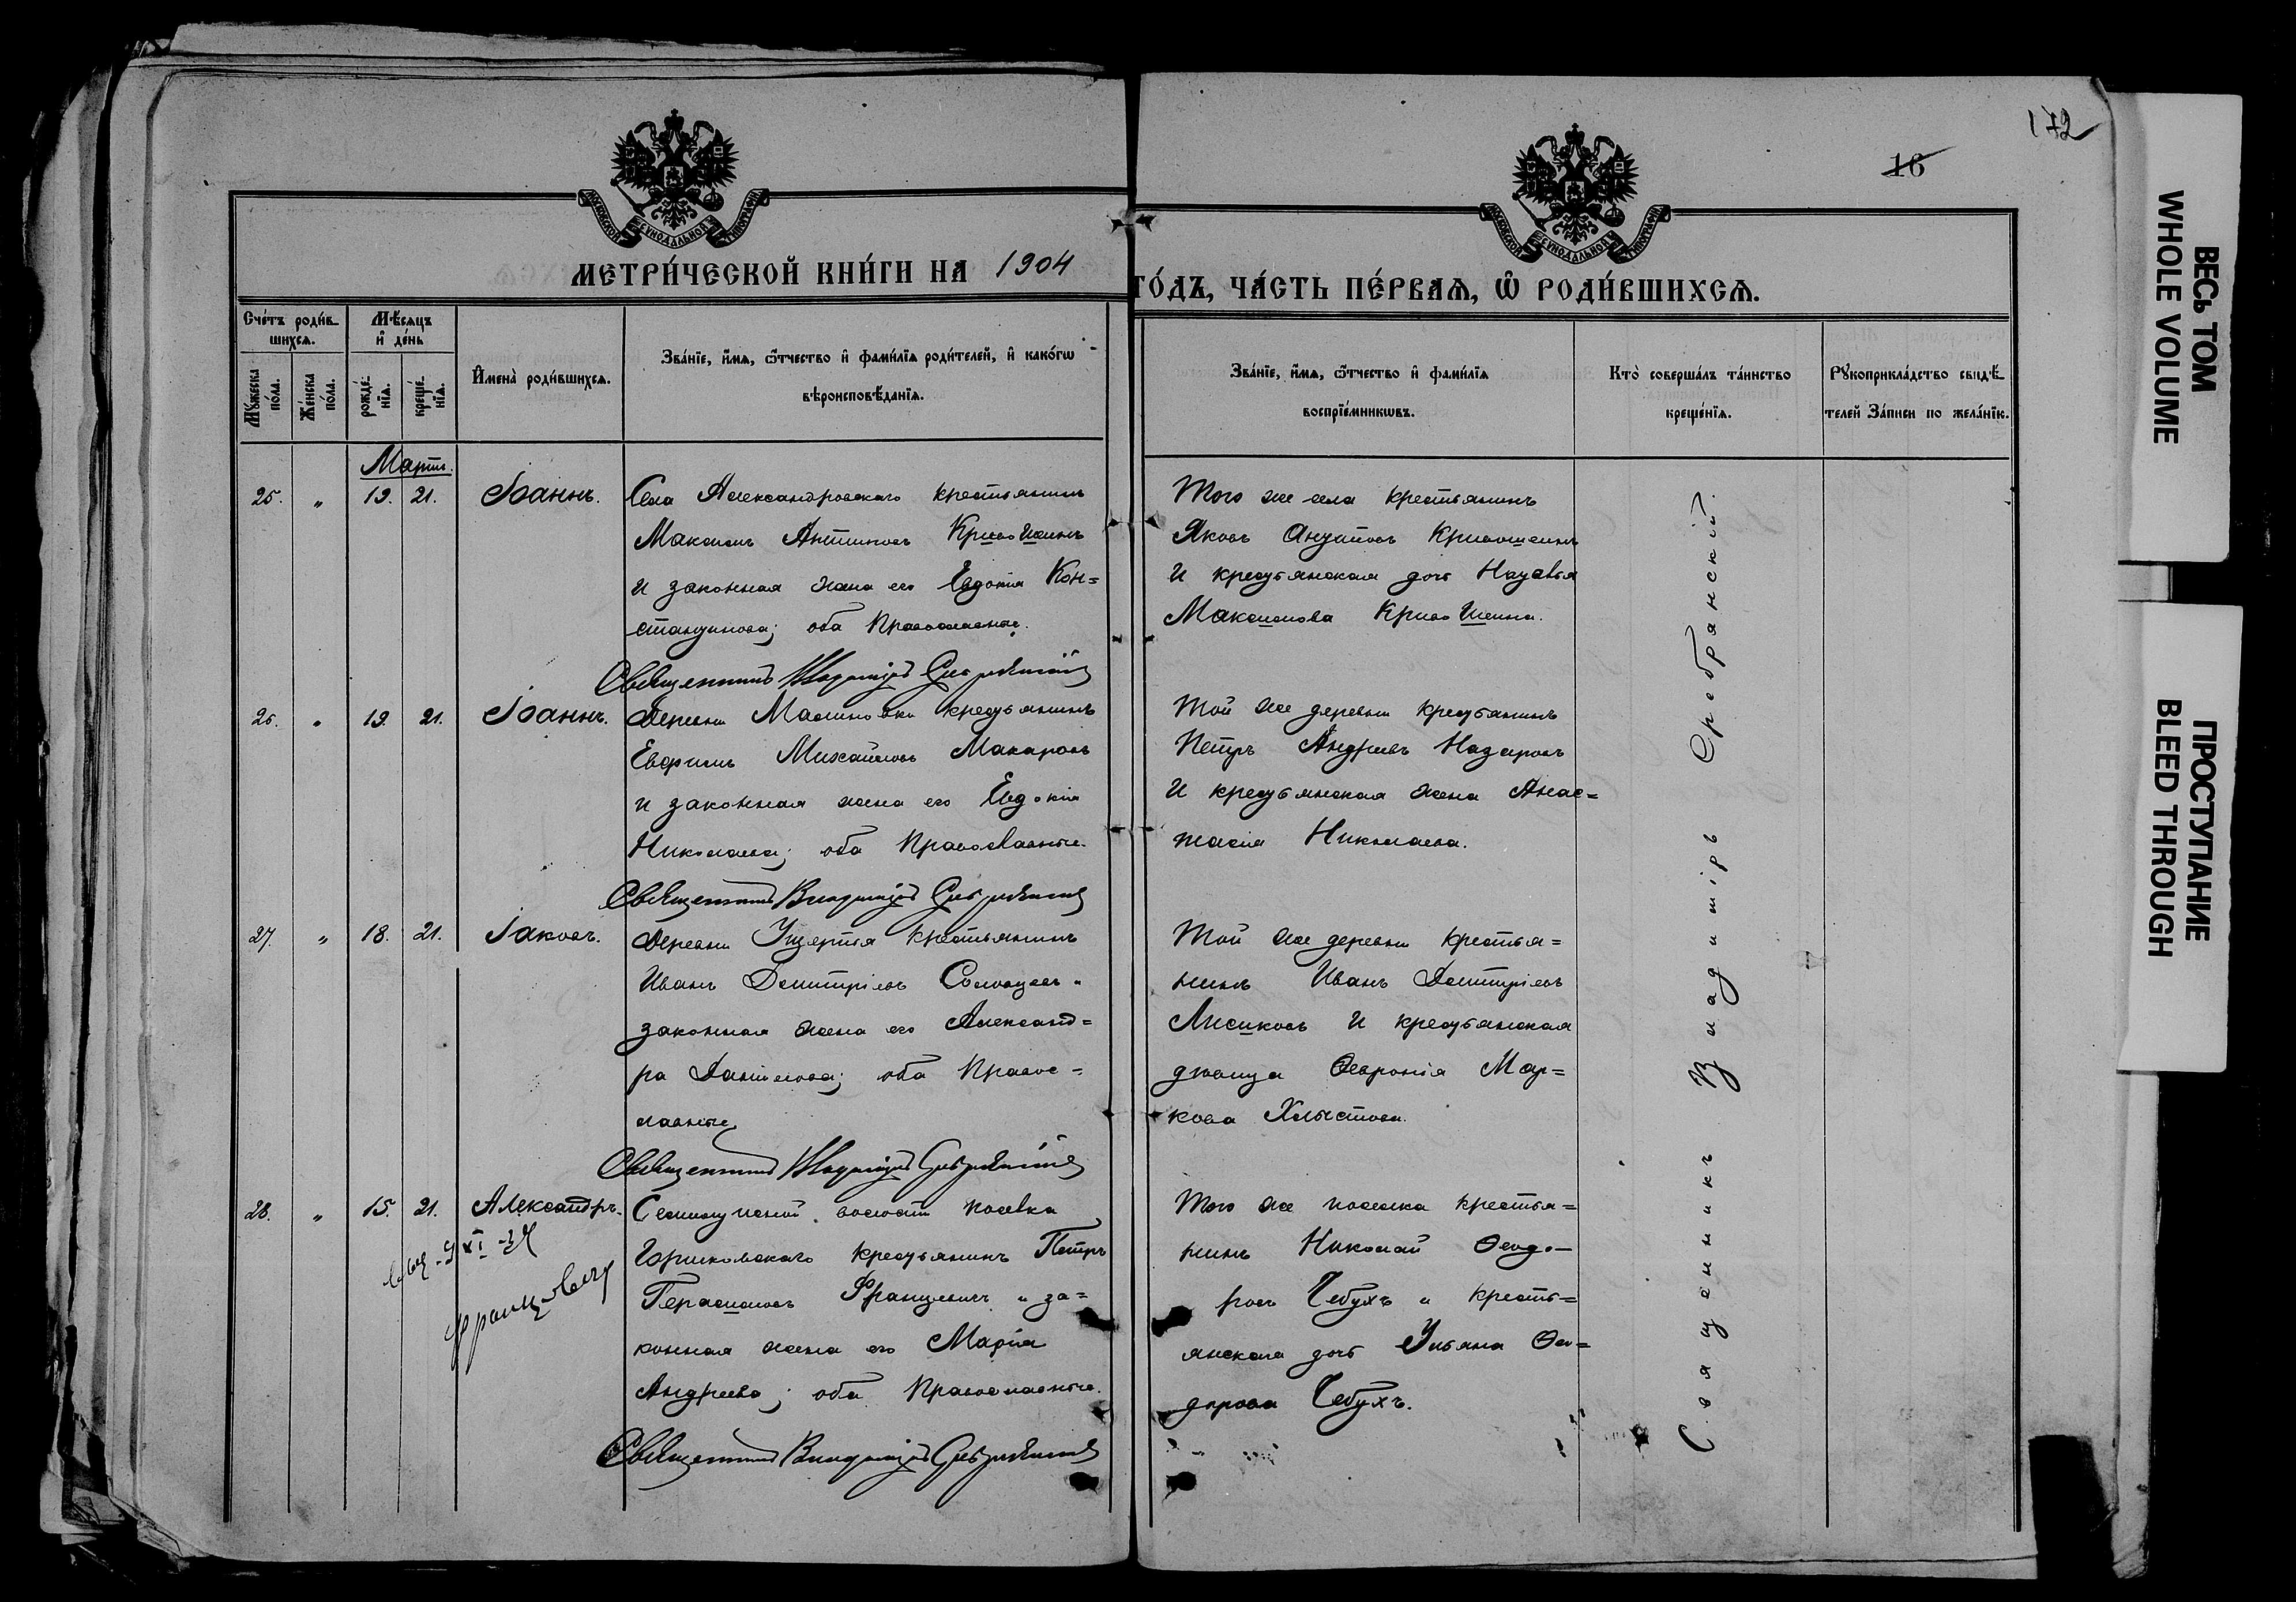 172
16
МОСКОВСКОЙ СѴНОДАЛЬНОЙ ТИПОГРАФІИ
МОСКОВСКОЙ СѴНОДАЛЬНОЙ ТИПОГРАФІИ
МЕТРИ́ЧЕСКОЙ КНИ́ГИ НА 1904
ГО́ДЪ, ЧА́СТЬ ПЕ́РВАѦ, Ѡ РОДИ́ВШИХСѦ.
Сче́тъ роди́в-
шихсѧ.
Мѣ́сѧцъ
и҆ де́нь
Мꙋ́жеска по́ла.
Же́нска по́ла.
рожде́-
нїѧ.
креще́-
нїѧ.
И҆мена̀ роди́вшихсѧ.
Зва́нїе, и҆́мѧ, ѻ҆́тчество и҆ фами́лїѧ роди́телей, и҆ како́гѡ
вѣроисповѣ́данїѧ.
Зва́нїе, и҆́мѧ, ѻ҆́тчество и҆ фами́лїѧ
воспрїе́мникѡвъ.
Кто̀ соверша́лъ та́инство
креще́нїѧ.
Рꙋкоприкла́дство свидѣ́-
телей За́писи по жела́нїю.
Мартъ.
25. " 19. 21. Іоаннъ.
Села Александровскаго крестьянинъ
Максимъ Антиповъ Кривошеинъ
и законная жена его Евдокія Кон=
стантинова; оба Православные.
Священникъ Владиміръ Сребрянскій
Того же села крестьянинъ
Яковъ Антиповъ Кривошеинъ
и крестьянская дочь Наталья
Максимова Кривошеина.
26. " 19. 21. Іоаннъ.
Деревни Малиновки крестьянинъ
Ефримъ Михайловъ Макаровъ
и законная жена его Евдокія
Николаева; оба Православные.
Священникъ Владиміръ Сребрянскій
Той же деревни крестьянинъ
Петръ Андреевъ Назаровъ
и крестьянская жена Анас=
тасія Николаева.
27. " 18. 21. Іаковъ.
Деревни крестьянинъ
Иванъ Димитріевъ и
законная жена его Александ=
ра Даніилова; оба Правос=
лавные
Священникъ Владиміръ Сребрянскій
Той же деревни крестья=
нинъ Иванъ Димитріевъ
Лисиковъ и крестьянская
дѣвица Ѳевронія Мар=
кова Хлыстова.
28. " 15. 21. Александръ.
волости поселка
Горшковскаго крестьянинъ Петръ
Герасимовъ Францевичъ и за=
конная жена его Марія
Андреева; оба Православные.
Священникъ Владиміръ Сребрянскій
Того же поселка крестья=
нинъ Николай Ѳеодо=
ровъ Чебухъ и кресть=
янская дочь Ульяна Ѳео=
дорова Чебухъ.
Священникъ Владиміръ Сребрянскій.
ВЕСЬ ТОМ
WHOLE VOLUME
ПРОСТУПАНИЕ
BLEED THROUGH